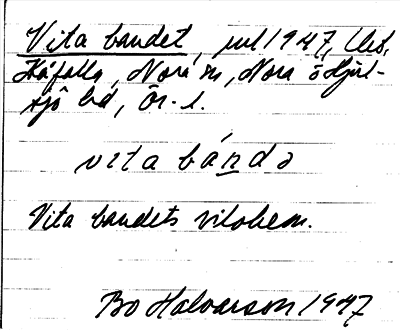 Vita bandet, vil 1947,
Håfalla, Nora sn, Nora o Hjul-
sjö bd, Ör. l.
vita bánda
Vita bandets vilohem.
Bo Halvarson 1947